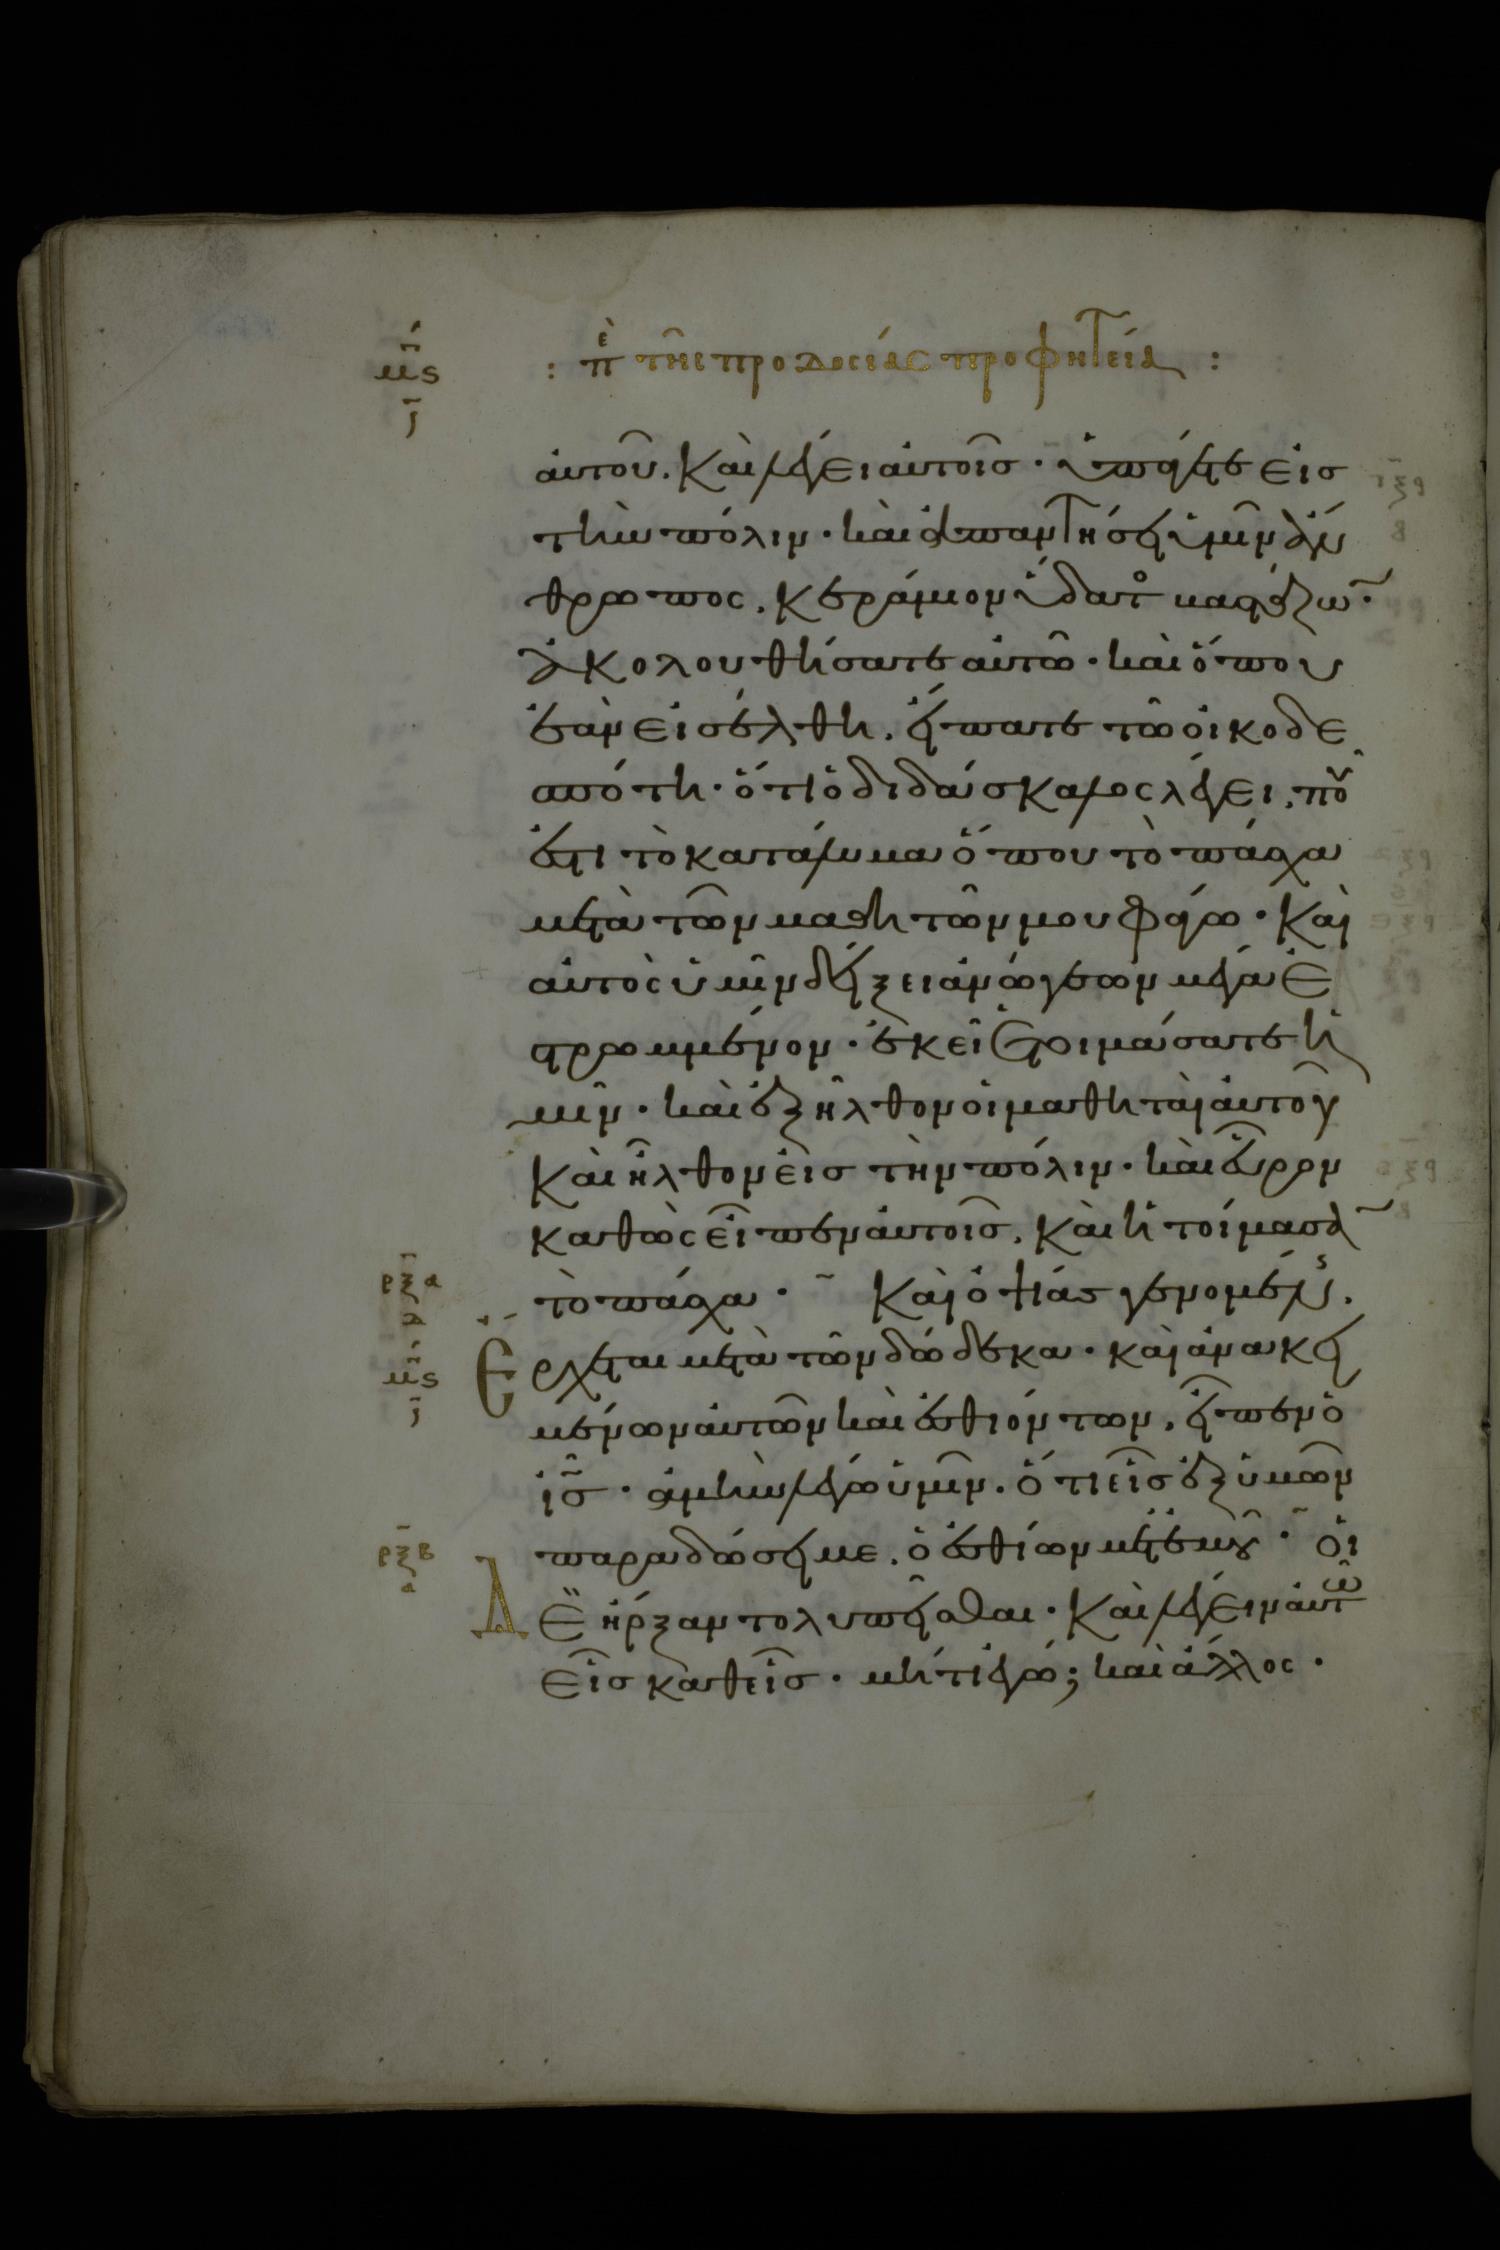 μ̅ς̅
ι̅
: πὲ τῆς προδοσίας προφητεία :
αὐτοῦ. Καὶ λέγει αὐτοῖσ · ὑπάγετε εἰσ
τὴν πόλιν · καὶ ἀπαντήσει ὑμῖν ἄν
θρωπος, κεράμιον ὕδατο βαστάζων ·
ἀκολουθήσατε αὐτῶ · καὶ ὅπου
ἐὰν εἰσέλθη, εἴπατε τῶ οἰκοδε
σπότη · ὅτι ὁ διδάσκαλος λέγει, ποῦ
ἐστι τὸ κατάλυμα ὅπου τὸ πάσχα
μετὰ τῶν μαθητῶν μου φάγω · Καὶ
αὐτὸς ὑμῖν δείξει ἀνώγεων μέγα ἐ
στρωμμένον · ἐκεῖ ἑτοιμάσατε ἡ
μῖν · καὶ ἐξῆλθον οἱ μαθηταὶ αὐτοῦ
Καὶ ἦλθον εἰσ τὴν πόλιν · καὶ εὗρον
καθὼς εἶπεν αὐτοῖσ, καὶ ἡτοίμασα
τὸ πάσχα · Καὶ ὀψίας γενομένης,
Ἔρχεται μετὰ τῶν δώδεκα · καὶ ἀνακει
μένων αὐτῶν καὶ ἐσθιόντων, εἶπεν ὁ
ἰ̅σ̅ · ἀμὴν λέγω ὑμῖν · ὅτι εἷσ ἐξ ὑμῶν
παραδώσει με, ὁ ἐσθίων μετ' ἐμοῦ · Οἱ
Δὲ ἤρξαντο λυπεῖσθαι · Καὶ λέγειν αὐτῶ
εἷσ καθεῖσ · μήτι ἐγώ; καὶ ἄλλος ·
ρξα
μ̅ς̅
ι̅
ρξβ
α